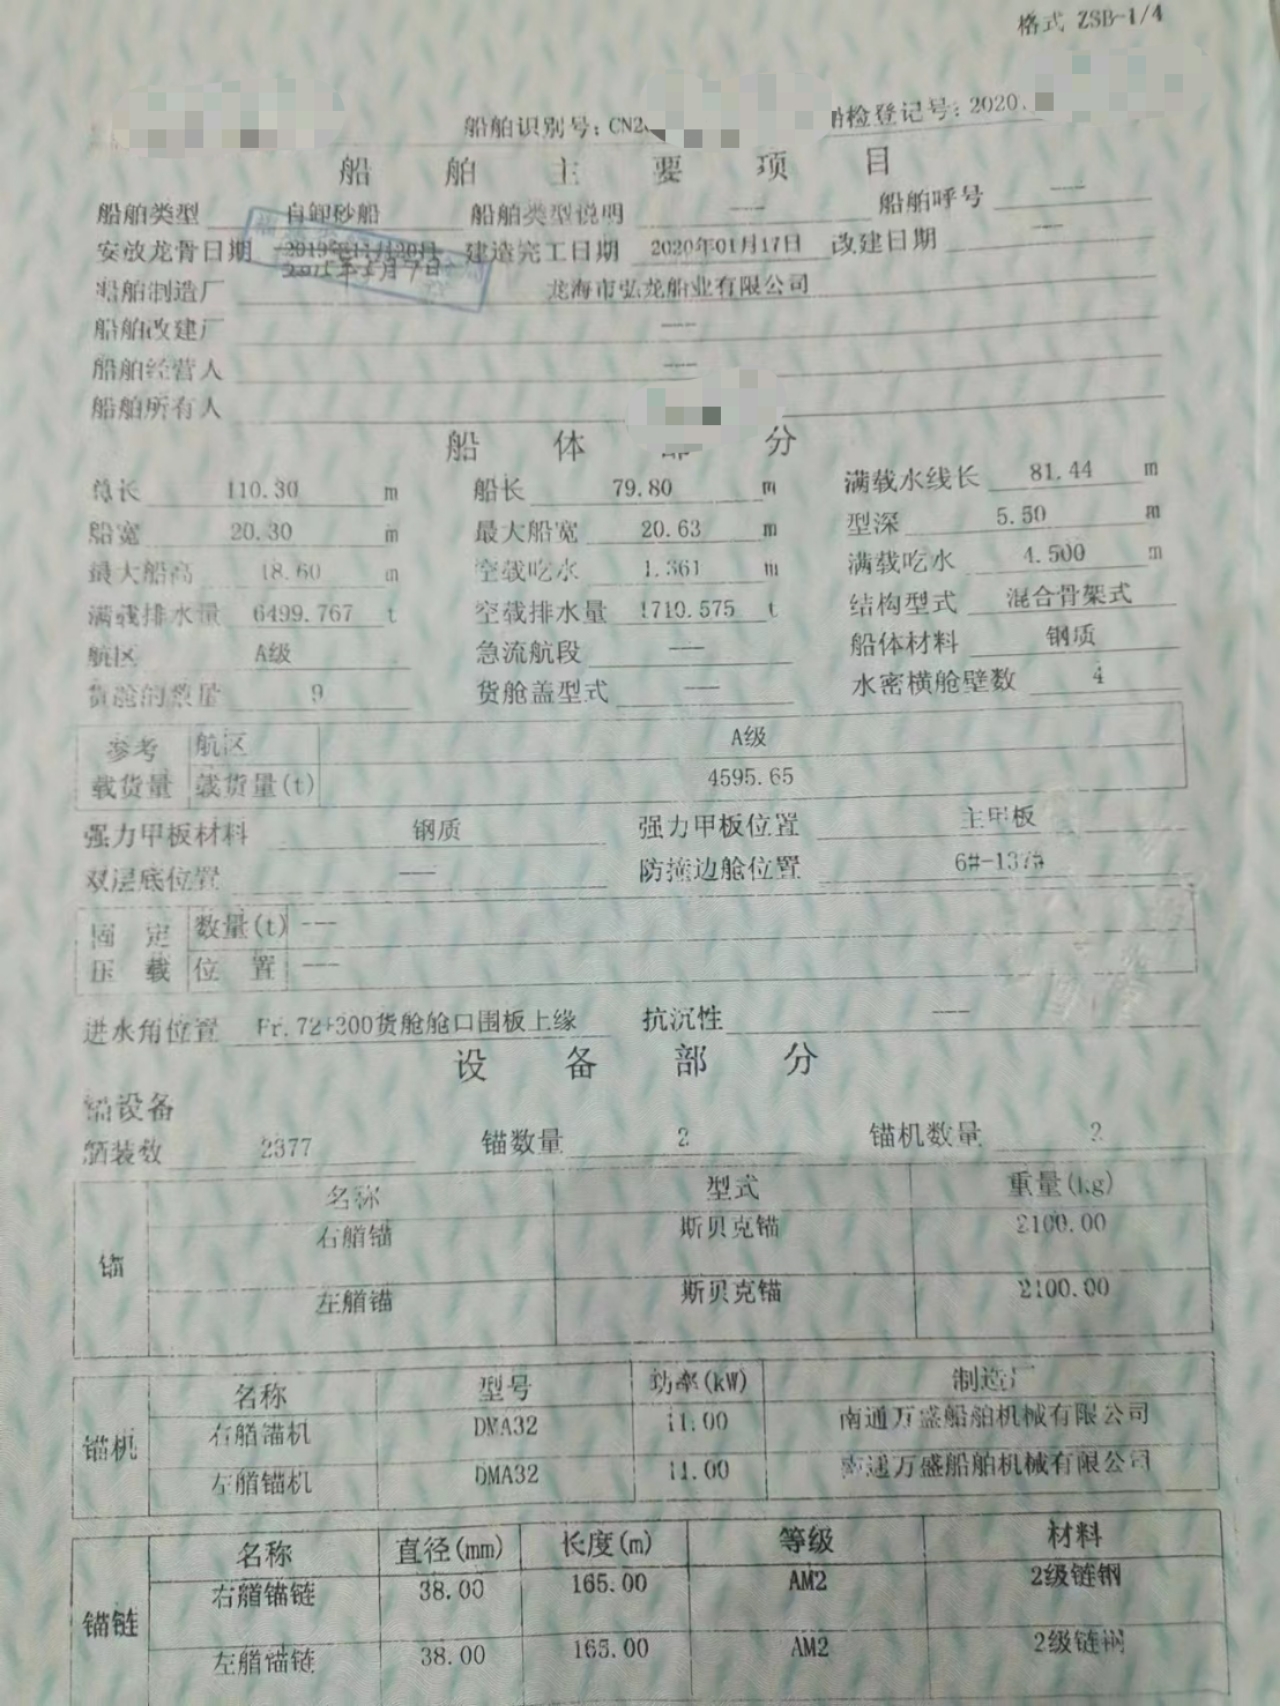 格式 ZSB-1/4
船舶识别号：CN2 船检登记号：2020.
船舶主要项目
船舶类型 自卸砂船 船舶类型说明 --- 船舶呼号 ---
安放龙骨日期 2019年11月20日 建造完工日期 2020年01月17日 改建日期 ---
船舶制造厂 龙海市弘龙船业有限公司
船舶改建厂 ---
船舶经营人 ---
船舶所有人
船体部分
总长 110.30 m 船长 79.80 m 满载水线长 81.44 m
船宽 20.30 m 最大船宽 20.63 m 型深 5.50 m
最大船高 18.60 m 空载吃水 1.361 m 满载吃水 4.500 m
满载排水量 6499.767 t 空载排水量 1710.575 t 结构型式 混合骨架式
航区 A级 急流航段 --- 船体材料 钢质
货舱的数量 9 货舱盖型式 --- 水密横舱壁数 4
参考 航区 A级
载货量 载货量(t) 4595.65
强力甲板材料 钢质 强力甲板位置 主甲板
双层底位置 --- 防撞边舱位置 6#-137#
固定 数量(t) ---
压载 位置 ---
进水角位置 Fr.72+300货舱舱口围板上缘 抗沉性 ---
设备部分
锚设备
舾装数 2377 锚数量 2 锚机数量 2
锚 名称 型式 重量(kg)
右艏锚 斯贝克锚 2100.00
左艏锚 斯贝克锚 2100.00
锚机 名称 型号 功率(kW) 制造厂
右艏锚机 DMA32 11.00 南通万盛船舶机械有限公司
左艏锚机 DMA32 11.00 南通万盛船舶机械有限公司
锚链 名称 直径(mm) 长度(m) 等级 材料
右艏锚链 38.00 165.00 AM2 2级链钢
左艏锚链 38.00 165.00 AM2 2级链钢